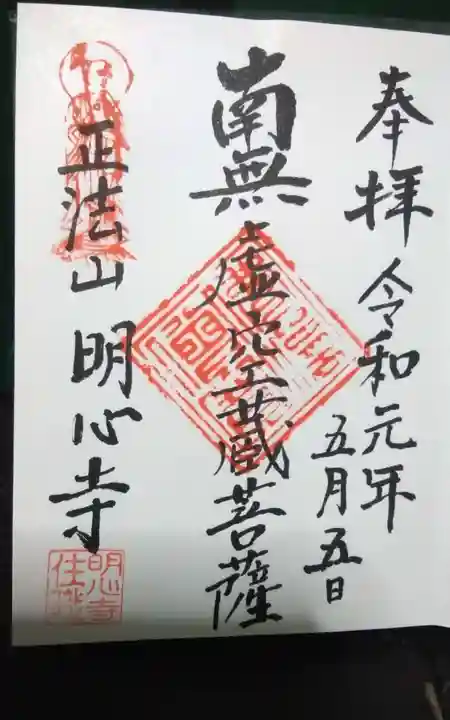 奉拝 令和元年
五月五日
南無虚空蔵菩薩
正法山 明心寺
明心寺